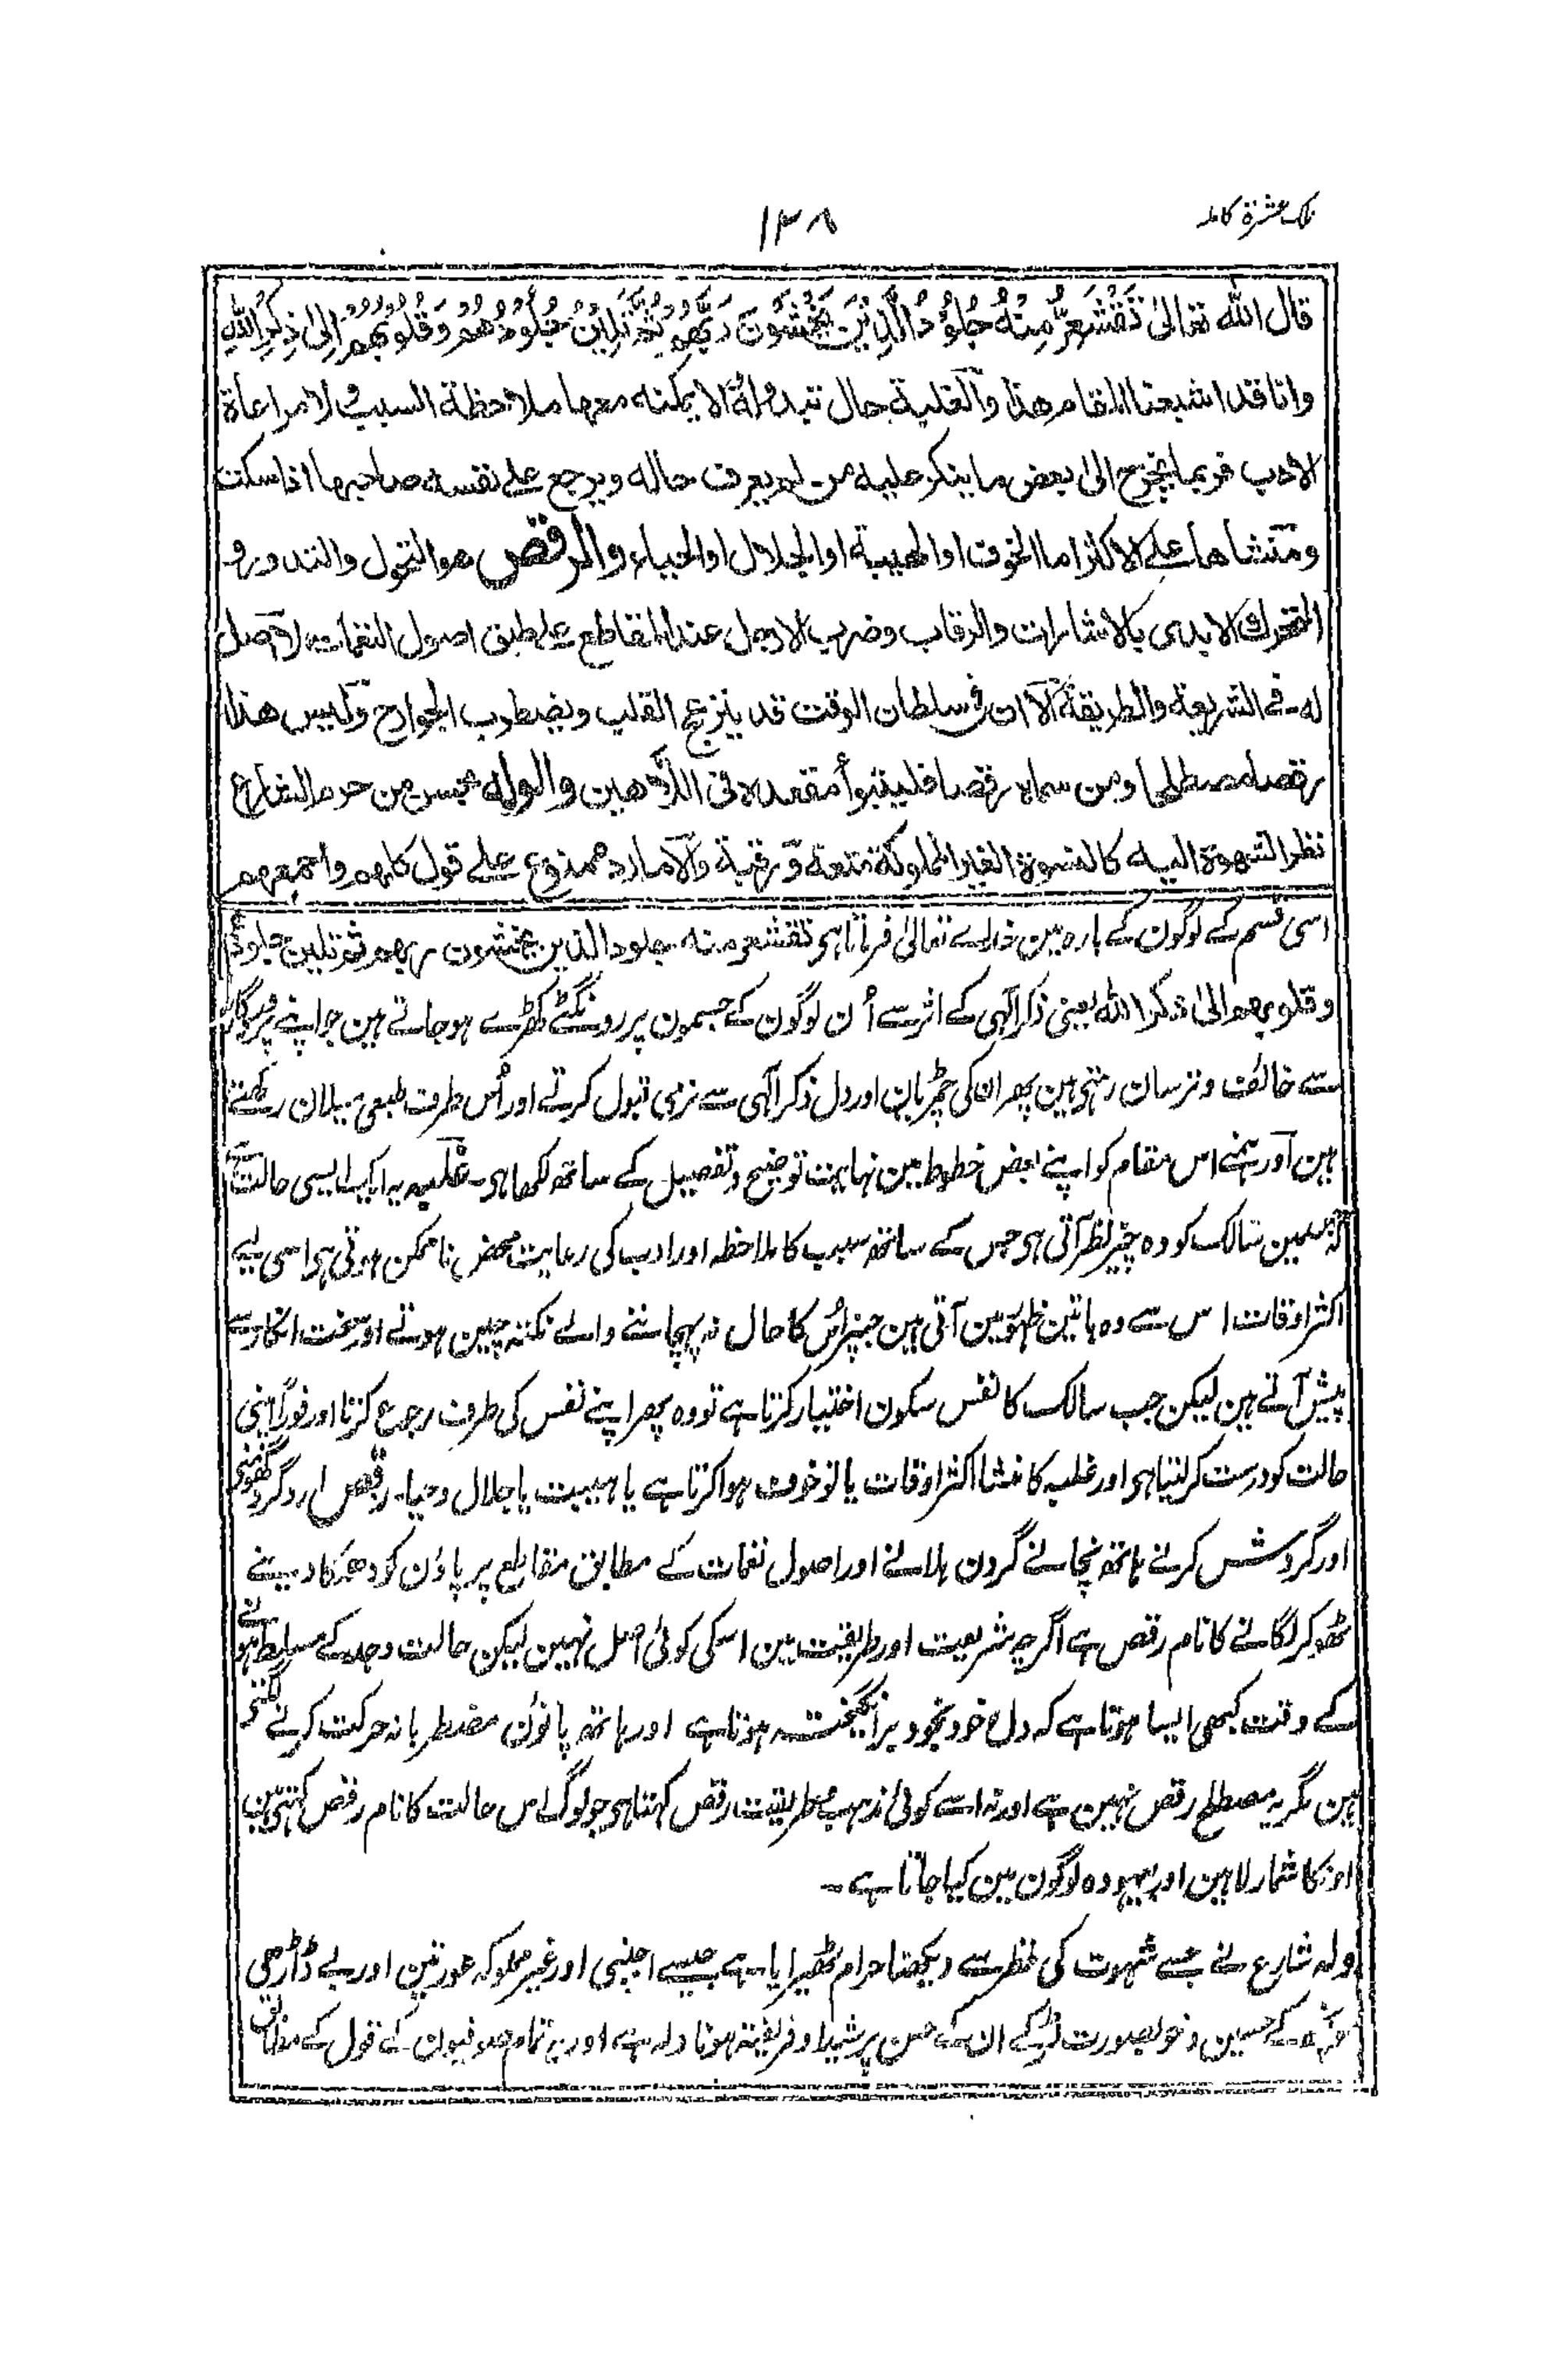 تلک عشرۃ کاملہ
۱۳۸
قال اللہ تعالیٰ تَقْشَعِرُّ مِنْهُ جُلُوْدُ الَّذِيْنَ يَخْشَوْنَ رَبَّهُمْ ثُمَّ تَلِيْنُ جُلُوْدُهُمْ وَقُلُوْبُهُمْ اِلىٰ ذِكْرِ اللّٰهِ
وانا قد اشبعنا المقام هذا والغلبة حال تبدو له لا يمكنه معها ملاحظة السبب ولا مراعاة
الادب فربما يخرج الىٰ بعض ما ينكر عليه من لم يعرف حاله ويرجع علے نفسه صاحبها اذا سكنت
ومنشاها علے الاكثر اما الخوف او الهيبة او الجلال او الحياء والرقص هو التحول والتدور و
التحرك الايدى بالاشارات والرقاب وضرب الارجل عند المقاطع علے طبق اصول النغمات لا اصل
له فے الشريعة والطريقة الا ان فى سلطان الوقت قد ينزعج القلب ويضطرب الجوارح وليس هذا
رقصا مصطلحا ومن سماه رقصا فليتبوأ مقعده فى اللاهين والوله من حرم الشارع
نظر الشهوة اليه كالنسوة الغير المملوكة متعة ورقبة والامارد ممنوع علے قول كلهم واجمعهم
اسی قسم کے لوگون کے بارہ مین خداے تعالیٰ فرماتا ہی تقشعر منہ جلود الذین یخشون ربھم ثم تلین جلودھم
وقلوبھم الیٰ ذکر اللہ یعنی ذکر الٰہی کے اثر سے اُن لوگون کے جسمون پر رونگٹے کھڑے ہو جاتے ہین جو اپنے پروردگار
سے خائف و ترسان رہتی ہین پھر ان کی چمڑیان اور دل ذکر الٰہی سے نرمی قبول کرتے اور اُس طرف طبعی میلان رکھتے
ہین اور ہمنے اس مقام کو اپنے بعض خطوط مین نہایت توضیح و تفصیل کے ساتھ لکھا ہی۔ غلبہ یہ ایک ایسی حالت ہے
کہ جسمین سالک کو وہ چیز نظر آتی ہی جس کے ساتھ سبب کا ملاحظہ اور ادب کی رعایت محض ناممکن ہوتی ہی اسی لیے
اکثر اوقات اس سے وہ باتین ظہور مین آتی ہین جنپر اُس کا حال نہ پہچاننے والے نکتہ چین ہوتے اور سخت انکار سے
پیش آتے ہین لیکن جب سالک کا نفس سکون اختیار کرتا ہے تو وہ پھر اپنے نفس کی طرف رجوع کرتا اور فوراً اپنی
حالت کو درست کر لیتا ہی اور غلبہ کا منشا اکثر اوقات یا تو خوف ہوا کرتا ہے یا ہیبت یا جلال و حیا۔ رقص ارد گرد گھومنے
اور گردش کرنے ہاتھ نچانے گردن ہلانے اور اصول نغمات کے مطابق مقاطع پر پاؤن کو دھکا دینے
ٹھوکر لگانے کا نام رقص ہے اگرچہ شریعت اور طریقت مین اسکی کوئی اصل نہین لیکن حالت وجد کے مسلط ہونے
کے وقت کبھی ایسا ہوتا ہے کہ دل خود بخود برانگیختہ ہوتا ہے اور ہاتھ پانوُن مضطربانہ حرکت کرنے لگتے
ہین مگر یہ مصطلح رقص نہین ہے اور نہ اسے کوئی مذہب طریقت رقص کہتا ہی جو لوگ اس حالت کا نام رقص کہتے ہین
اونکا شمار لاہین اور بیہودہ لوگون مین کیا جاتا ہے۔
ولہ شارع نے جسے شہوت کی نظر سے دیکھنا حرام ٹھیرایا ہے جیسے اجنبی اور غیر مملوکہ عورتین اور بے ڈاڑھی
کے حسین و خوبصورت لڑکے ان کے حسن پر شیدا و فریفتہ ہونا ولہ ہے اور یہ تمام صوفیون کے قول کے مطابق